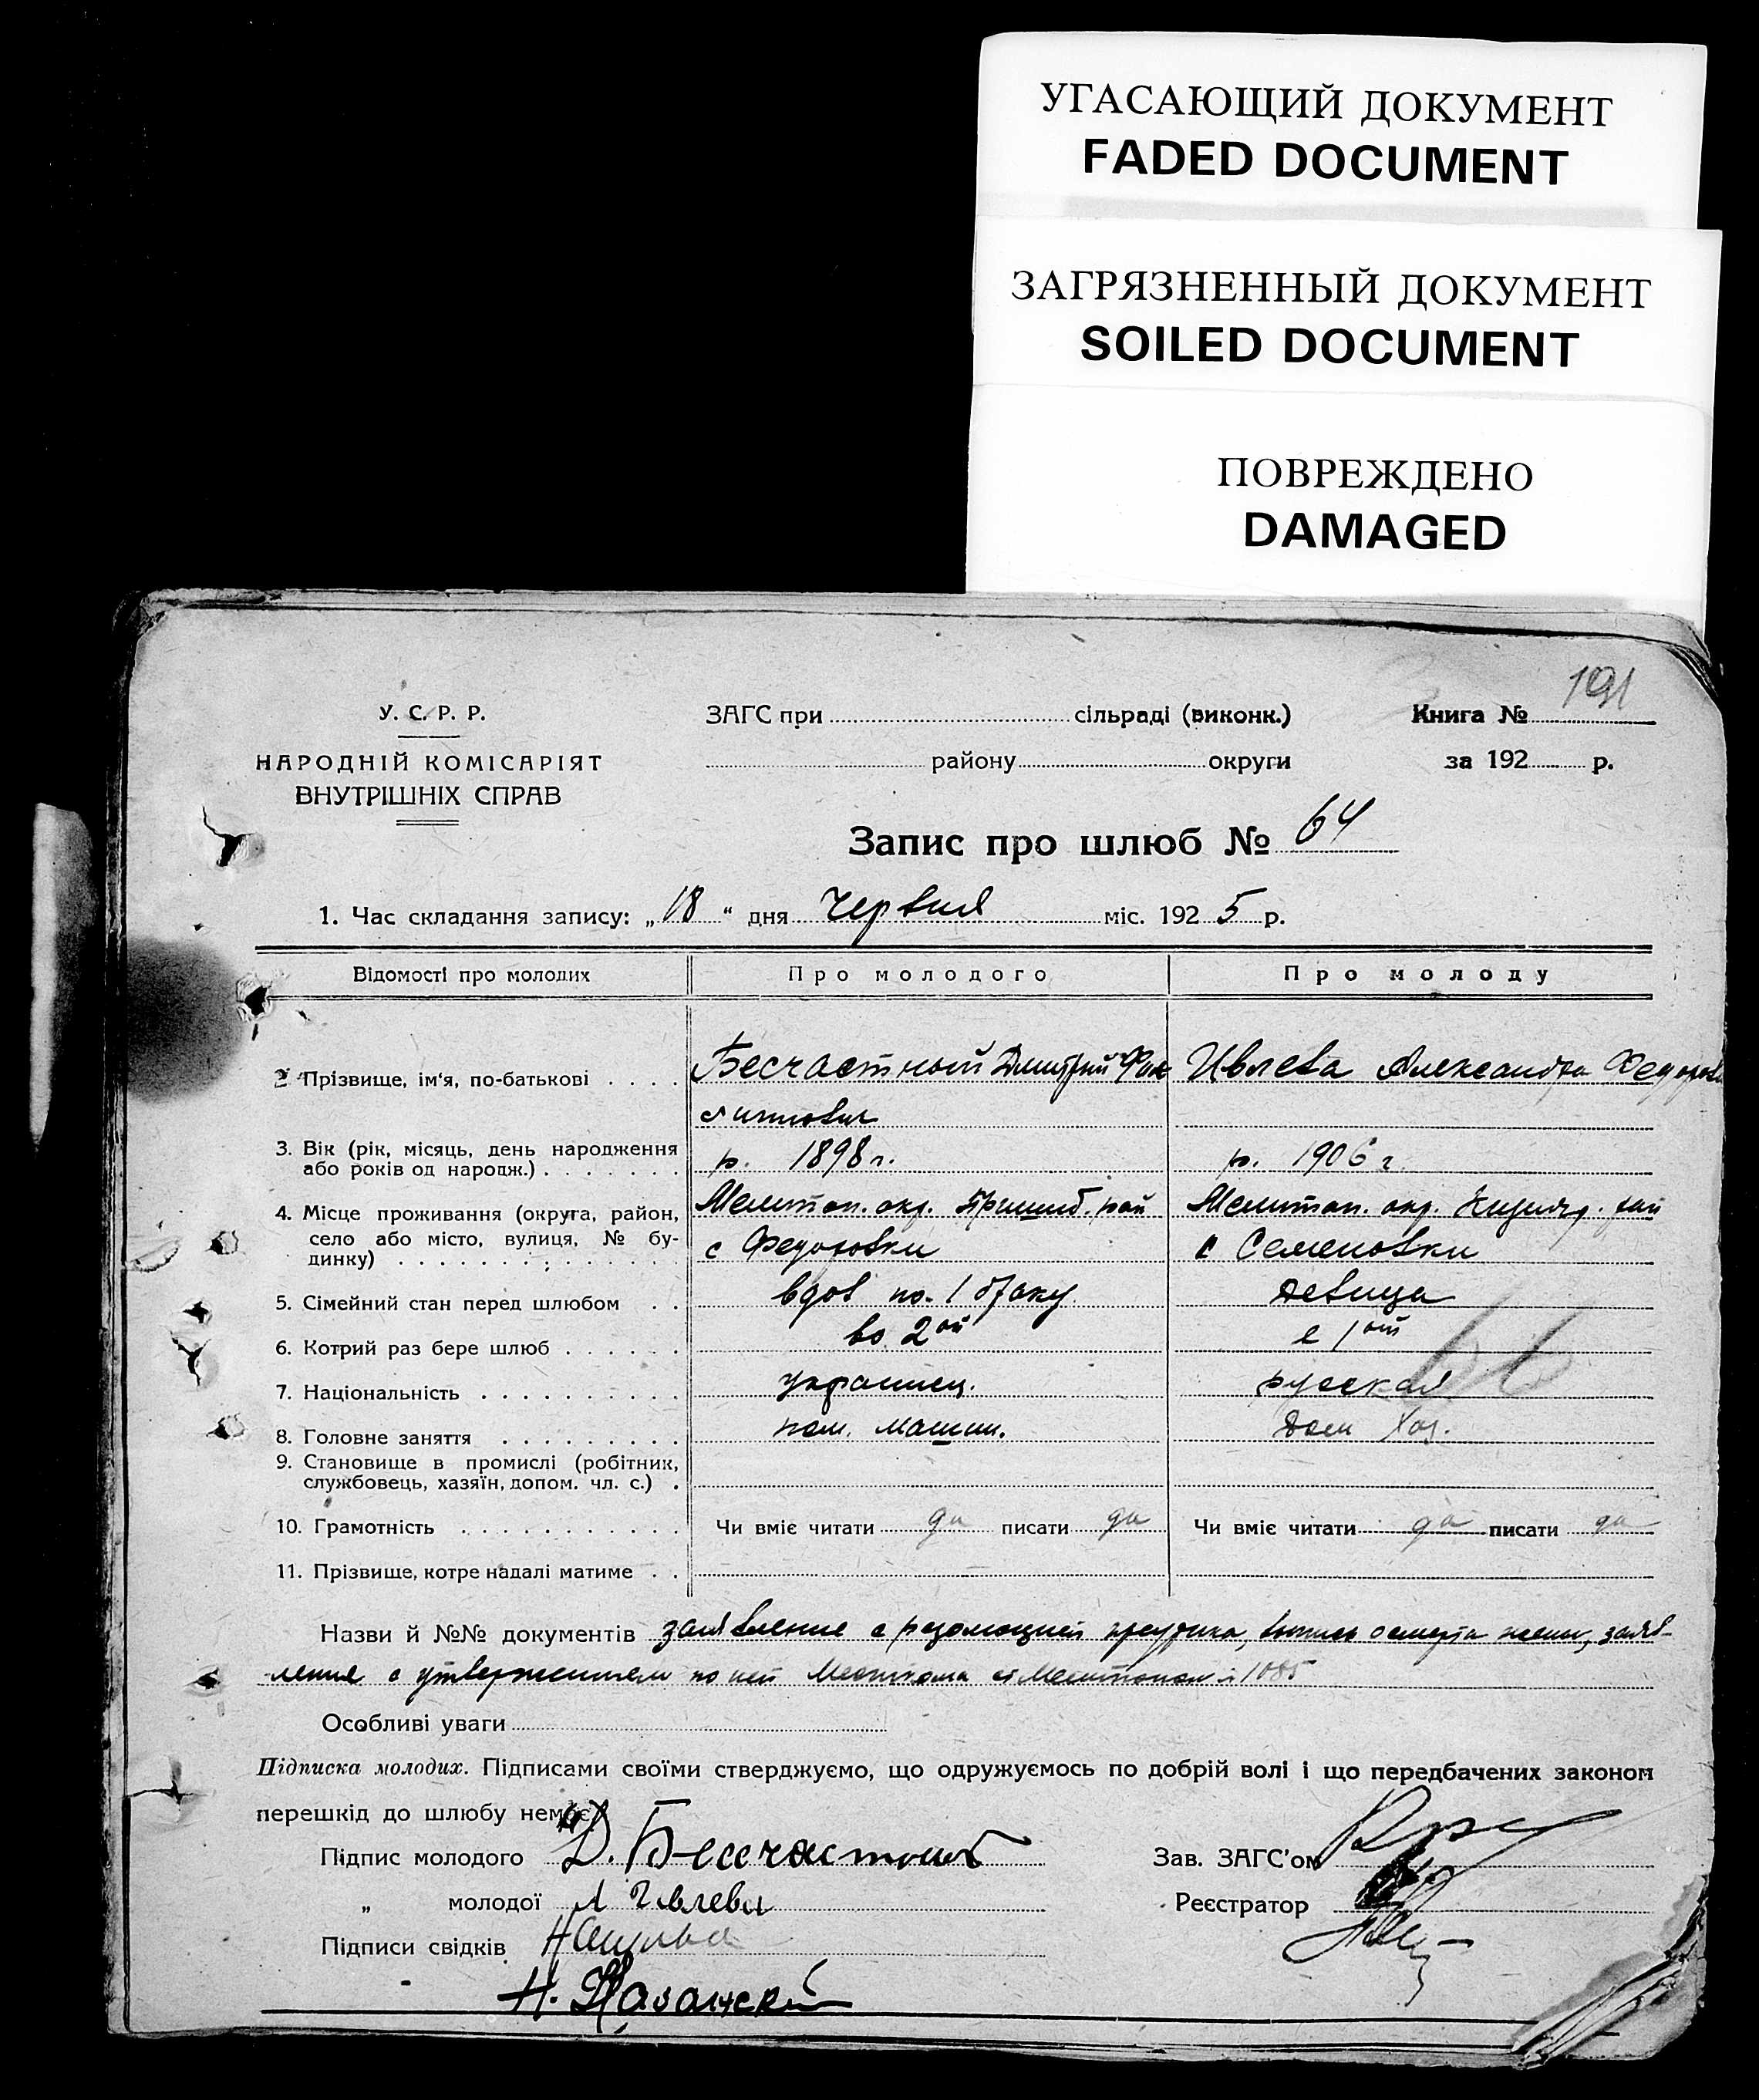 УГАСАЮЩИЙ ДОКУМЕНТ
FADED DOCUMENT
ЗАГРЯЗНЕННЫЙ ДОКУМЕНТ
SOILED DOCUMENT
ПОВРЕЖДЕНО
DAMAGED
191
У. С. Р. Р.
НАРОДНІЙ КОМІСАРІЯТ
ВНУТРІШНІХ СПРАВ
ЗАГС при сільраді (виконк.)
району округи
Книга №
за 192 р.
Запис про шлюб № 64
1. Час складання запису: „18“ дня червня міс. 1925 р.
Відомості про молодих Про молодого Про молоду
2. Прізвище, ім‘я, по-батькові Бесчастный Дмитрий Ивлева Александра
3. Вік (рік, місяць, день народження або років од народж.) р. 1898 г. р. 1906 г.
4. Місце проживання (округа, район, Мелитоп. окр. Пришиб. рай Мелитоп. окр.
село або місто, вулиця, № бу- с Федоровки с Семеновки
динку)
5. Сімейний стан перед шлюбом вдов по 1 браку девица
6. Котрий раз бере шлюб во 2ой в 1ый
7. Національність украинец. русская
8. Головне заняття пом. машин. дом хоз.
9. Становище в промислі (робітник,
службовець, хазяїн, допом. чл. с.)
10. Грамотність Чи вміє читати да писати да Чи вміє читати да писати да
11. Прізвище, котре надалі матиме
Назви й №№ документів заявление с резолюцией жены, заяв-
ление с по ней
Особливі уваги
Підписка молодих. Підписами своїми стверджуємо, що одружуємось по добрій волі і що передбачених законом
перешкід до шлюбу немає.
Підпис молодого Д. Бесчастный Зав. ЗАГС'ом
„ молодої А Ивлева Реєстратор
Підписи свідків